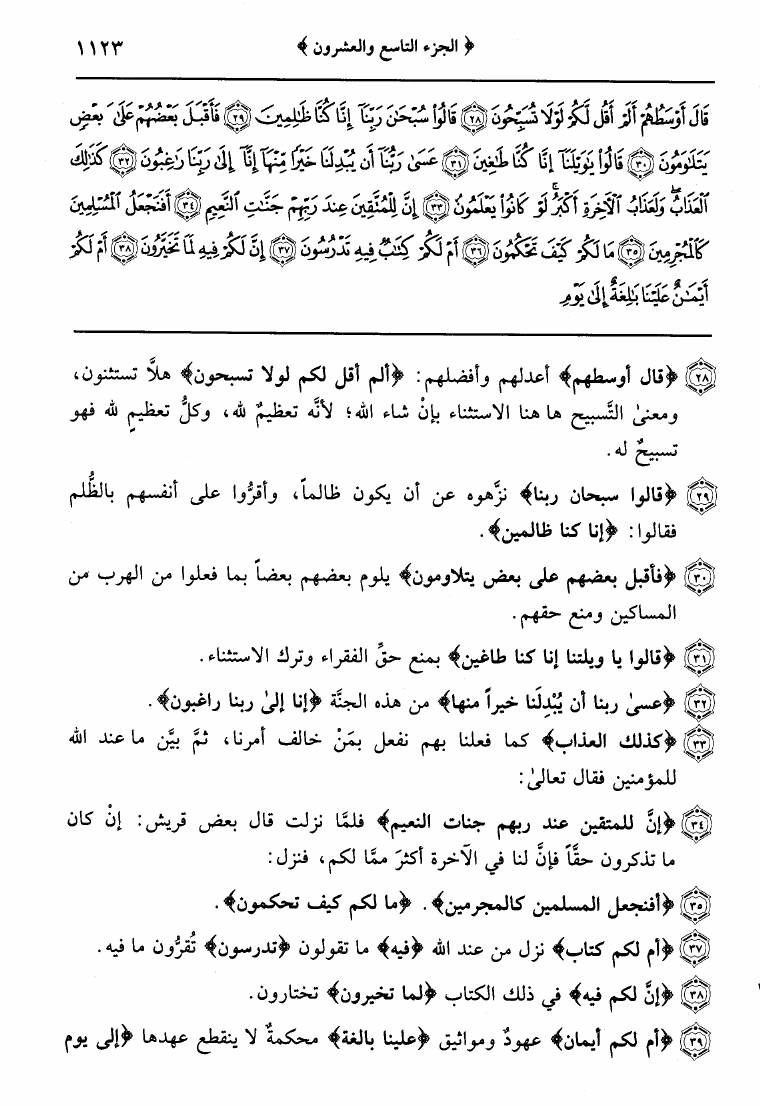 ﴿ الجزء التاسع والعشرون ﴾ ١١٢٣
قَالَ أَوْسَطُهُمْ أَلَمْ أَقُل لَّكُمْ لَوْلَا تُسَبِّحُونَ ﴿٢٨﴾ قَالُوا۟ سُبْحَٰنَ رَبِّنَآ إِنَّا كُنَّا ظَٰلِمِينَ ﴿٢٩﴾ فَأَقْبَلَ بَعْضُهُمْ عَلَىٰ بَعْضٍ
يَتَلَٰوَمُونَ ﴿٣٠﴾ قَالُوا۟ يَٰوَيْلَنَآ إِنَّا كُنَّا طَٰغِينَ ﴿٣١﴾ عَسَىٰ رَبُّنَآ أَن يُبْدِلَنَا خَيْرًا مِّنْهَآ إِنَّآ إِلَىٰ رَبِّنَا رَٰغِبُونَ ﴿٣٢﴾ كَذَٰلِكَ
ٱلْعَذَابُ ۖ وَلَعَذَابُ ٱلْءَاخِرَةِ أَكْبَرُ ۚ لَوْ كَانُوا۟ يَعْلَمُونَ ﴿٣٣﴾ إِنَّ لِلْمُتَّقِينَ عِندَ رَبِّهِمْ جَنَّٰتِ ٱلنَّعِيمِ ﴿٣٤﴾ أَفَنَجْعَلُ ٱلْمُسْلِمِينَ
كَٱلْمُجْرِمِينَ ﴿٣٥﴾ مَا لَكُمْ كَيْفَ تَحْكُمُونَ ﴿٣٦﴾ أَمْ لَكُمْ كِتَٰبٌ فِيهِ تَدْرُسُونَ ﴿٣٧﴾ إِنَّ لَكُمْ فِيهِ لَمَا تَخَيَّرُونَ ﴿٣٨﴾ أَمْ لَكُمْ
أَيْمَٰنٌ عَلَيْنَا بَٰلِغَةٌ إِلَىٰ يَوْمِ
﴿٢٨﴾ ﴿قال أوسطهم﴾ أعدلهم وأفضلهم: ﴿ألم أقل لكم لولا تسبحون﴾ هلاَّ تستثنون،
ومعنىٰ التَّسبيح ها هنا الاستثناء بإنْ شاء الله؛ لأنَّه تعظيمٌ لله، وكلُّ تعظيمٍ لله فهو
تسبيحٌ له.
﴿٢٩﴾ ﴿قالوا سبحان ربنا﴾ نزَّهوه عن أن يكون ظالماً، وأقرُّوا على أنفسهم بالظُّلم
فقالوا: ﴿إنا كنا ظالمين﴾.
﴿٣٠﴾ ﴿فأقبل بعضهم على بعض يتلاومون﴾ يلوم بعضهم بعضاً بما فعلوا من الهرب من
المساكين ومنع حقهم.
﴿٣١﴾ ﴿قالوا يا ويلتنا إنا كنا طاغين﴾ بمنع حقِّ الفقراء وترك الاستثناء.
﴿٣٢﴾ ﴿عسىٰ ربنا أن يُبْدِلَنا خيراً منها﴾ من هذه الجنَّة ﴿إنا إلىٰ ربنا راغبون﴾.
﴿٣٣﴾ ﴿كذلك العذاب﴾ كما فعلنا بهم نفعل بمَنْ خالف أمرنا، ثمَّ بيَّن ما عند الله
للمؤمنين فقال تعالىٰ:
﴿٣٤﴾ ﴿إنَّ للمتقين عند ربهم جنات النعيم﴾ فلمَّا نزلت قال بعض قريش: إنْ كان
ما تذكرون حقَّاً فإنَّ لنا في الآخرة أكثرَ ممَّا لكم، فنزل:
﴿٣٥﴾ ﴿أفنجعل المسلمين كالمجرمين﴾. ﴿ما لكم كيف تحكمون﴾.
﴿٣٧﴾ ﴿أم لكم كتاب﴾ نزل من عند الله ﴿فيه﴾ ما تقولون ﴿تدرسون﴾ تُقرُّون ما فيه.
﴿٣٨﴾ ﴿إنَّ لكم فيه﴾ في ذلك الكتاب ﴿لما تخيرون﴾ تختارون.
﴿٣٩﴾ ﴿أم لكم أيمان﴾ عهودٌ ومواثيق ﴿علينا بالغة﴾ محكمةٌ لا ينقطع عهدها ﴿إلى يوم